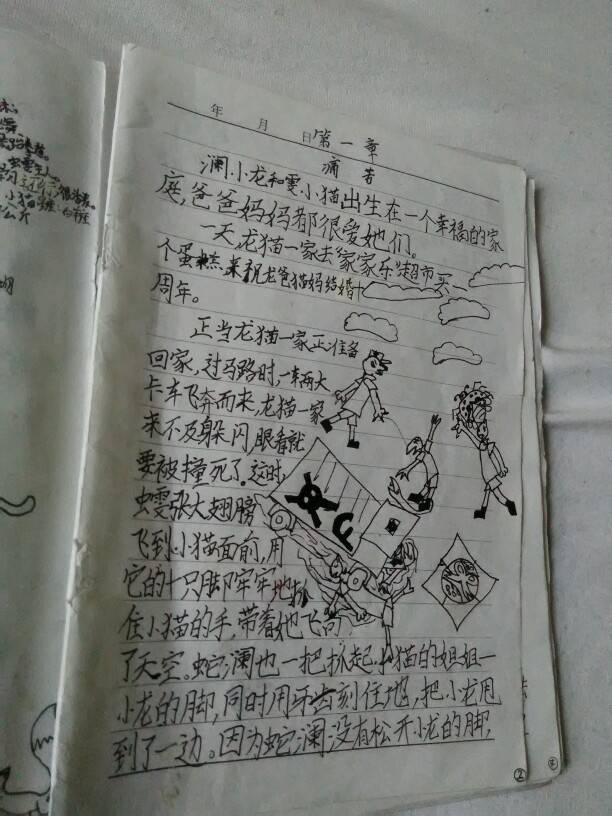 年 月 日
第一章
澜小龙和雯小猫出生在一个幸福的家
庭,爸爸妈妈都很爱她们。
一天龙猫一家去“家家乐”超市买一
个蛋糕,来祝龙爸猫妈结婚十
周年。
正当龙猫一家正准备
回家,过马路时,一辆大
卡车飞奔而来,龙猫一家
来不及躲闪,眼看就
要被撞死了。这时,
张大翅膀
飞到小猫面前,用
它的十只脚牢牢地抓
住小猫的手,带着她飞向
了天空。蛇澜也一把抓起小猫的姐姐一
小龙的脚,同时用牙齿刻住地,把小龙甩
到了一边。因为蛇澜没有松开小龙的脚,
②